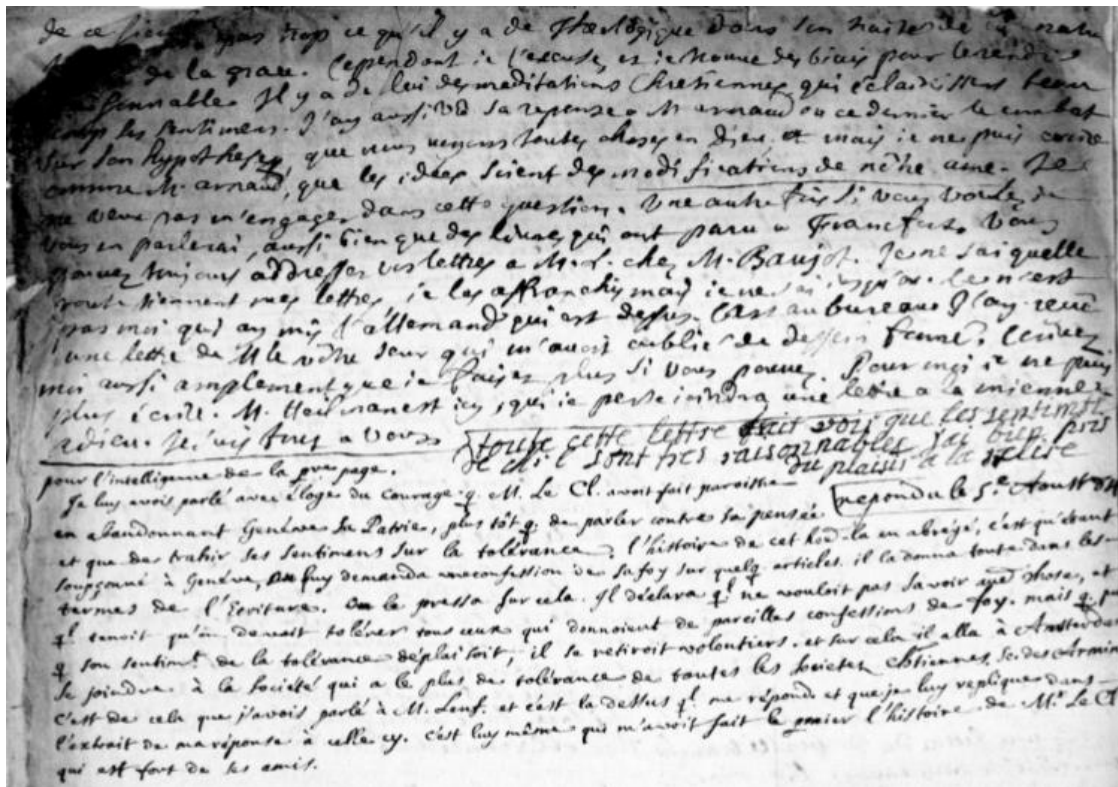 de ce pas trop ce qu'il y a de Theologique dans son traité de la natu
de la grace. Cependant je l'excuse, et je trouve des biais pour le rendre
raisonnable. Il y a de lui des meditations Chretiennes qui éclaircissent beau
coup ses sentimens. J'ay aussi vû sa reponse a M arnaud ou ce dernier le combat
sur son hypothese, que nous voyons toutes choses en Dieu. et mais je ne puis croire
comme M. arnaud, que les idées soient des modifications de nôtre ame. Je
ne veux pas m'engager dans cette question. Une autre fois si vous voulez je
vous en parlerai, aussi bien que des livres qui ont paru a Francfort. Vous
pouvez toujours addresser vos lettres a M. L. chez M. Baujot. Je ne sai quelle
route tiennent mes lettres, je les affranchis mais je ne sai jusqu'ou. Ce n'est
pas moi qui ay mis l'allemand qui est dessus. C'est au bureau. J'ay receu
une lettre de Mlle vôtre soeur qui m'avoit oublié de dessein formé. Ecrivez
moi aussi amplement que je fais et plus si vous pouvez. Pour moi je ne puis
plus écrire. M. est icy, qui je pense joindra une lettre a la mienne.
adieu. Je suis tout a vous.
toute cette lettre fait voir que les sentimts.
de sont tres raisonnables. j'ai bien pris
du plaisir a la relire
pour l'intelligence de la pre. page.
Je luy avois parlé avec éloge du courage q. M. Le Cl. avoit fait paroistre
repondu le 5e. Aoust 84
en abandonnant Genéve sa Patrie, plus tôt q. de parler contre sa pensée
et que de trahir ses sentimens sur la tolérance, l'histoire de cet hoe.-la en abrigé, c'est qu'étant
soupçonné à Genéve, on luy demanda une confession de sa foy sur quelq. articles. il la donna toute dans les
termes de l'Ecriture. On le pressa sur cela. Il déclara q'il ne vouloit pas savoir autre chose, et
q'il tenoit qu'on devoit tolérer tous ceux qui donnoient de pareilles confessions de foy. mais q. p
q. son sentimt. de la tolérance déplaisoit, il se retiroit volontiers. et sur cela il alla à Amsterdam
se joindre à la société qui a le plus de tolérance de toutes les societez Chtiennes, sc. des Armin
c'est de cela que j'avois parlé à M. Lenf. et c'est la dessus q'il me répond et que je luy replique dans
l'extrait de ma réponse à celle cy. c'est luy même qui m'avoit fait le premier l'histoire de Mr. Le Cl.
qui est fort de ses amis.